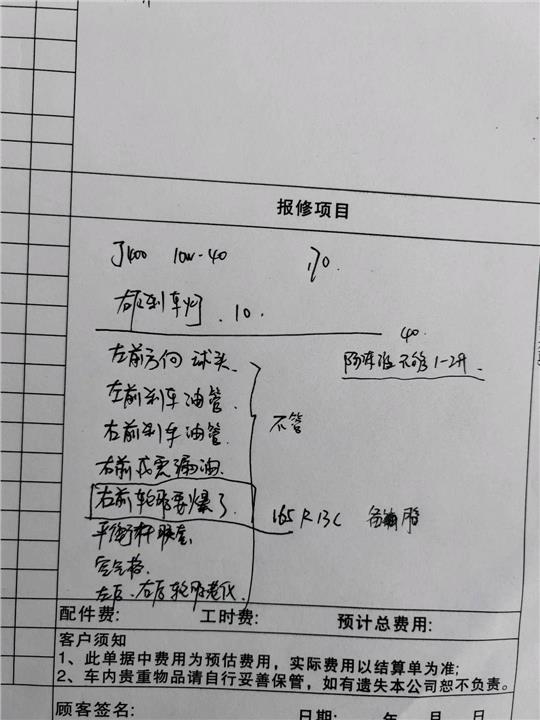 报修项目
J400 10w-40 170.
右后刹车灯. 10.
40.
左前方向球头. 防冻液不够1-2升.
左前刹车油管.
不管
右前刹车油管.
右前减震漏油.
右前轮胎要爆了. 165R13C 备用胎
平衡杆胶套.
空气格.
左后.右后轮胎老化.
配件费: 工时费: 预计总费用:
客户须知
1、此单据中费用为预估费用，实际费用以结算单为准;
2、车内贵重物品请自行妥善保管，如有遗失本公司恕不负责。
顾客签名: 日期: 年 月 日